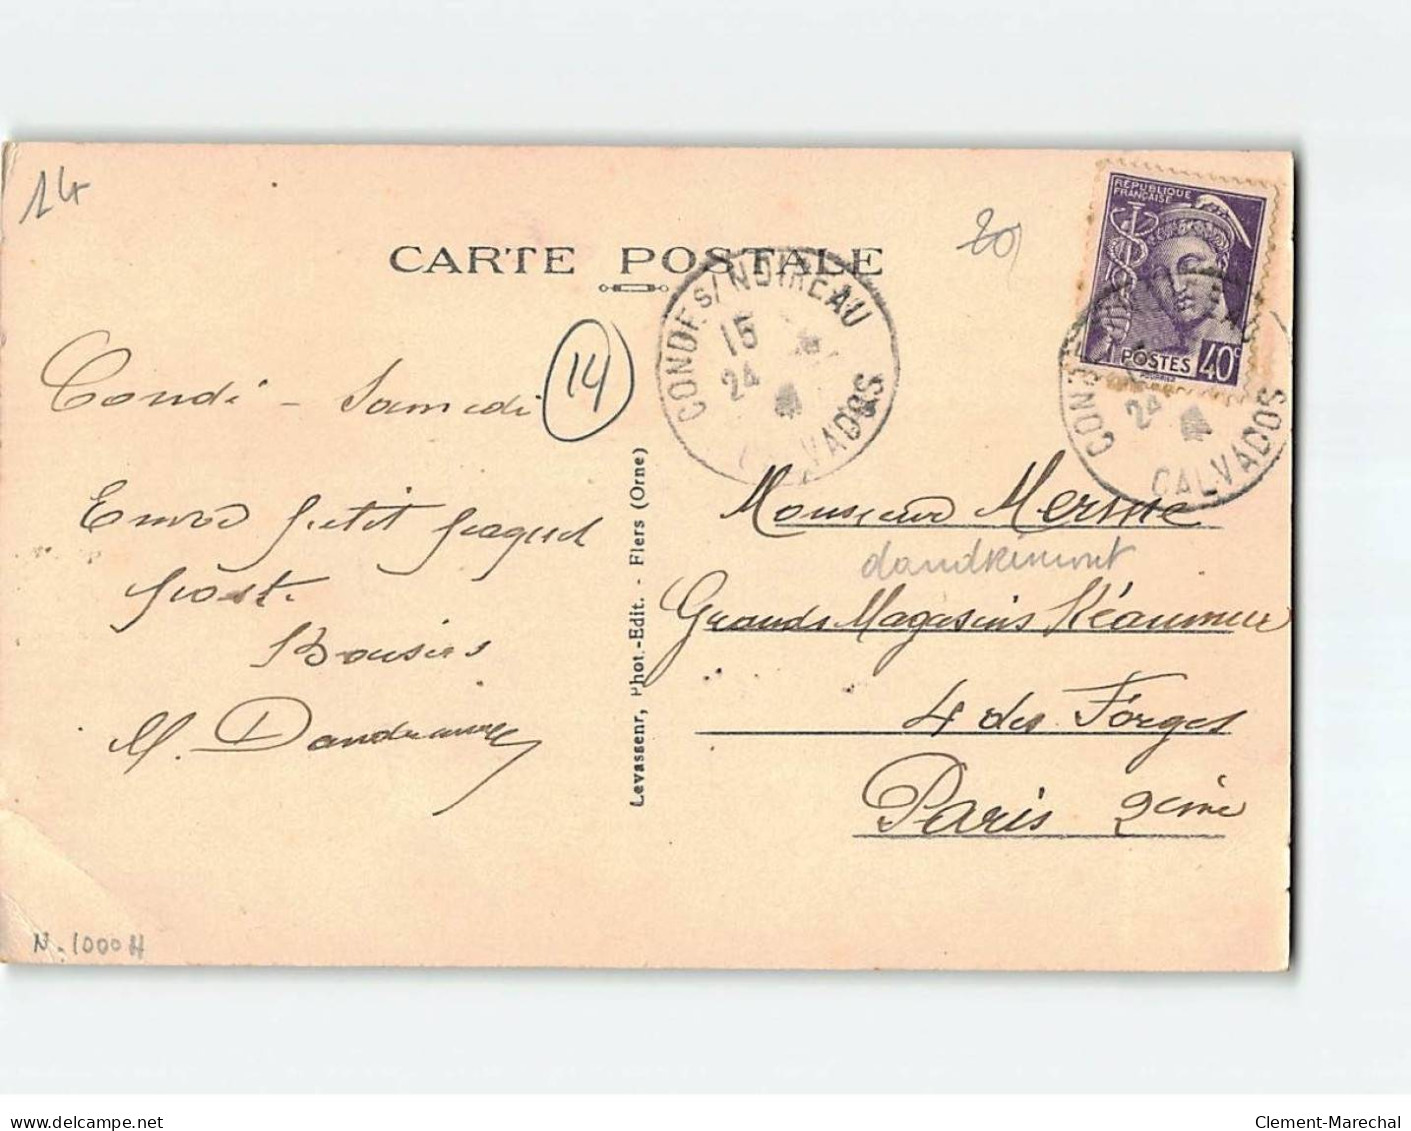 14
20
CARTE POSTALE
REPUBLIQUE
FRANÇAISE
POSTES 40c
CONDE s/ NOIREAU
15
24
CALVADOS
CONDE
24
CALVADOS
14
Condé - Samedi
petit paquet
poste
Baisers
M.
Levassenr, Phot.-Edit. - Flers (Orne)
Monsieur
Grands Magasins Réaumur
4 des Forges
Paris 2eme
N. 1000 H
delcampe.net
Clement-Marechal